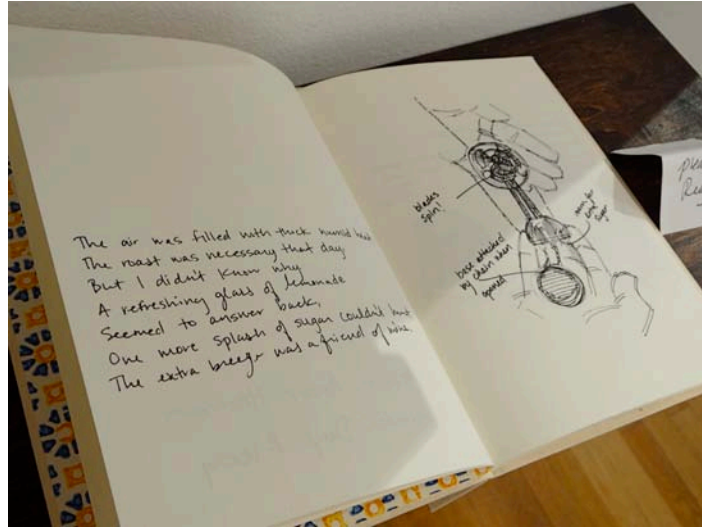 The air was filled with thick humid heat
The roast was necessary that day
But I didn't know why
A refreshing glass of lemonade
Seemed to answer back,
One more splash of sugar couldn't hurt
The extra breeze was a friend of mine.
blades
spin!
base attached
by chain when
opened